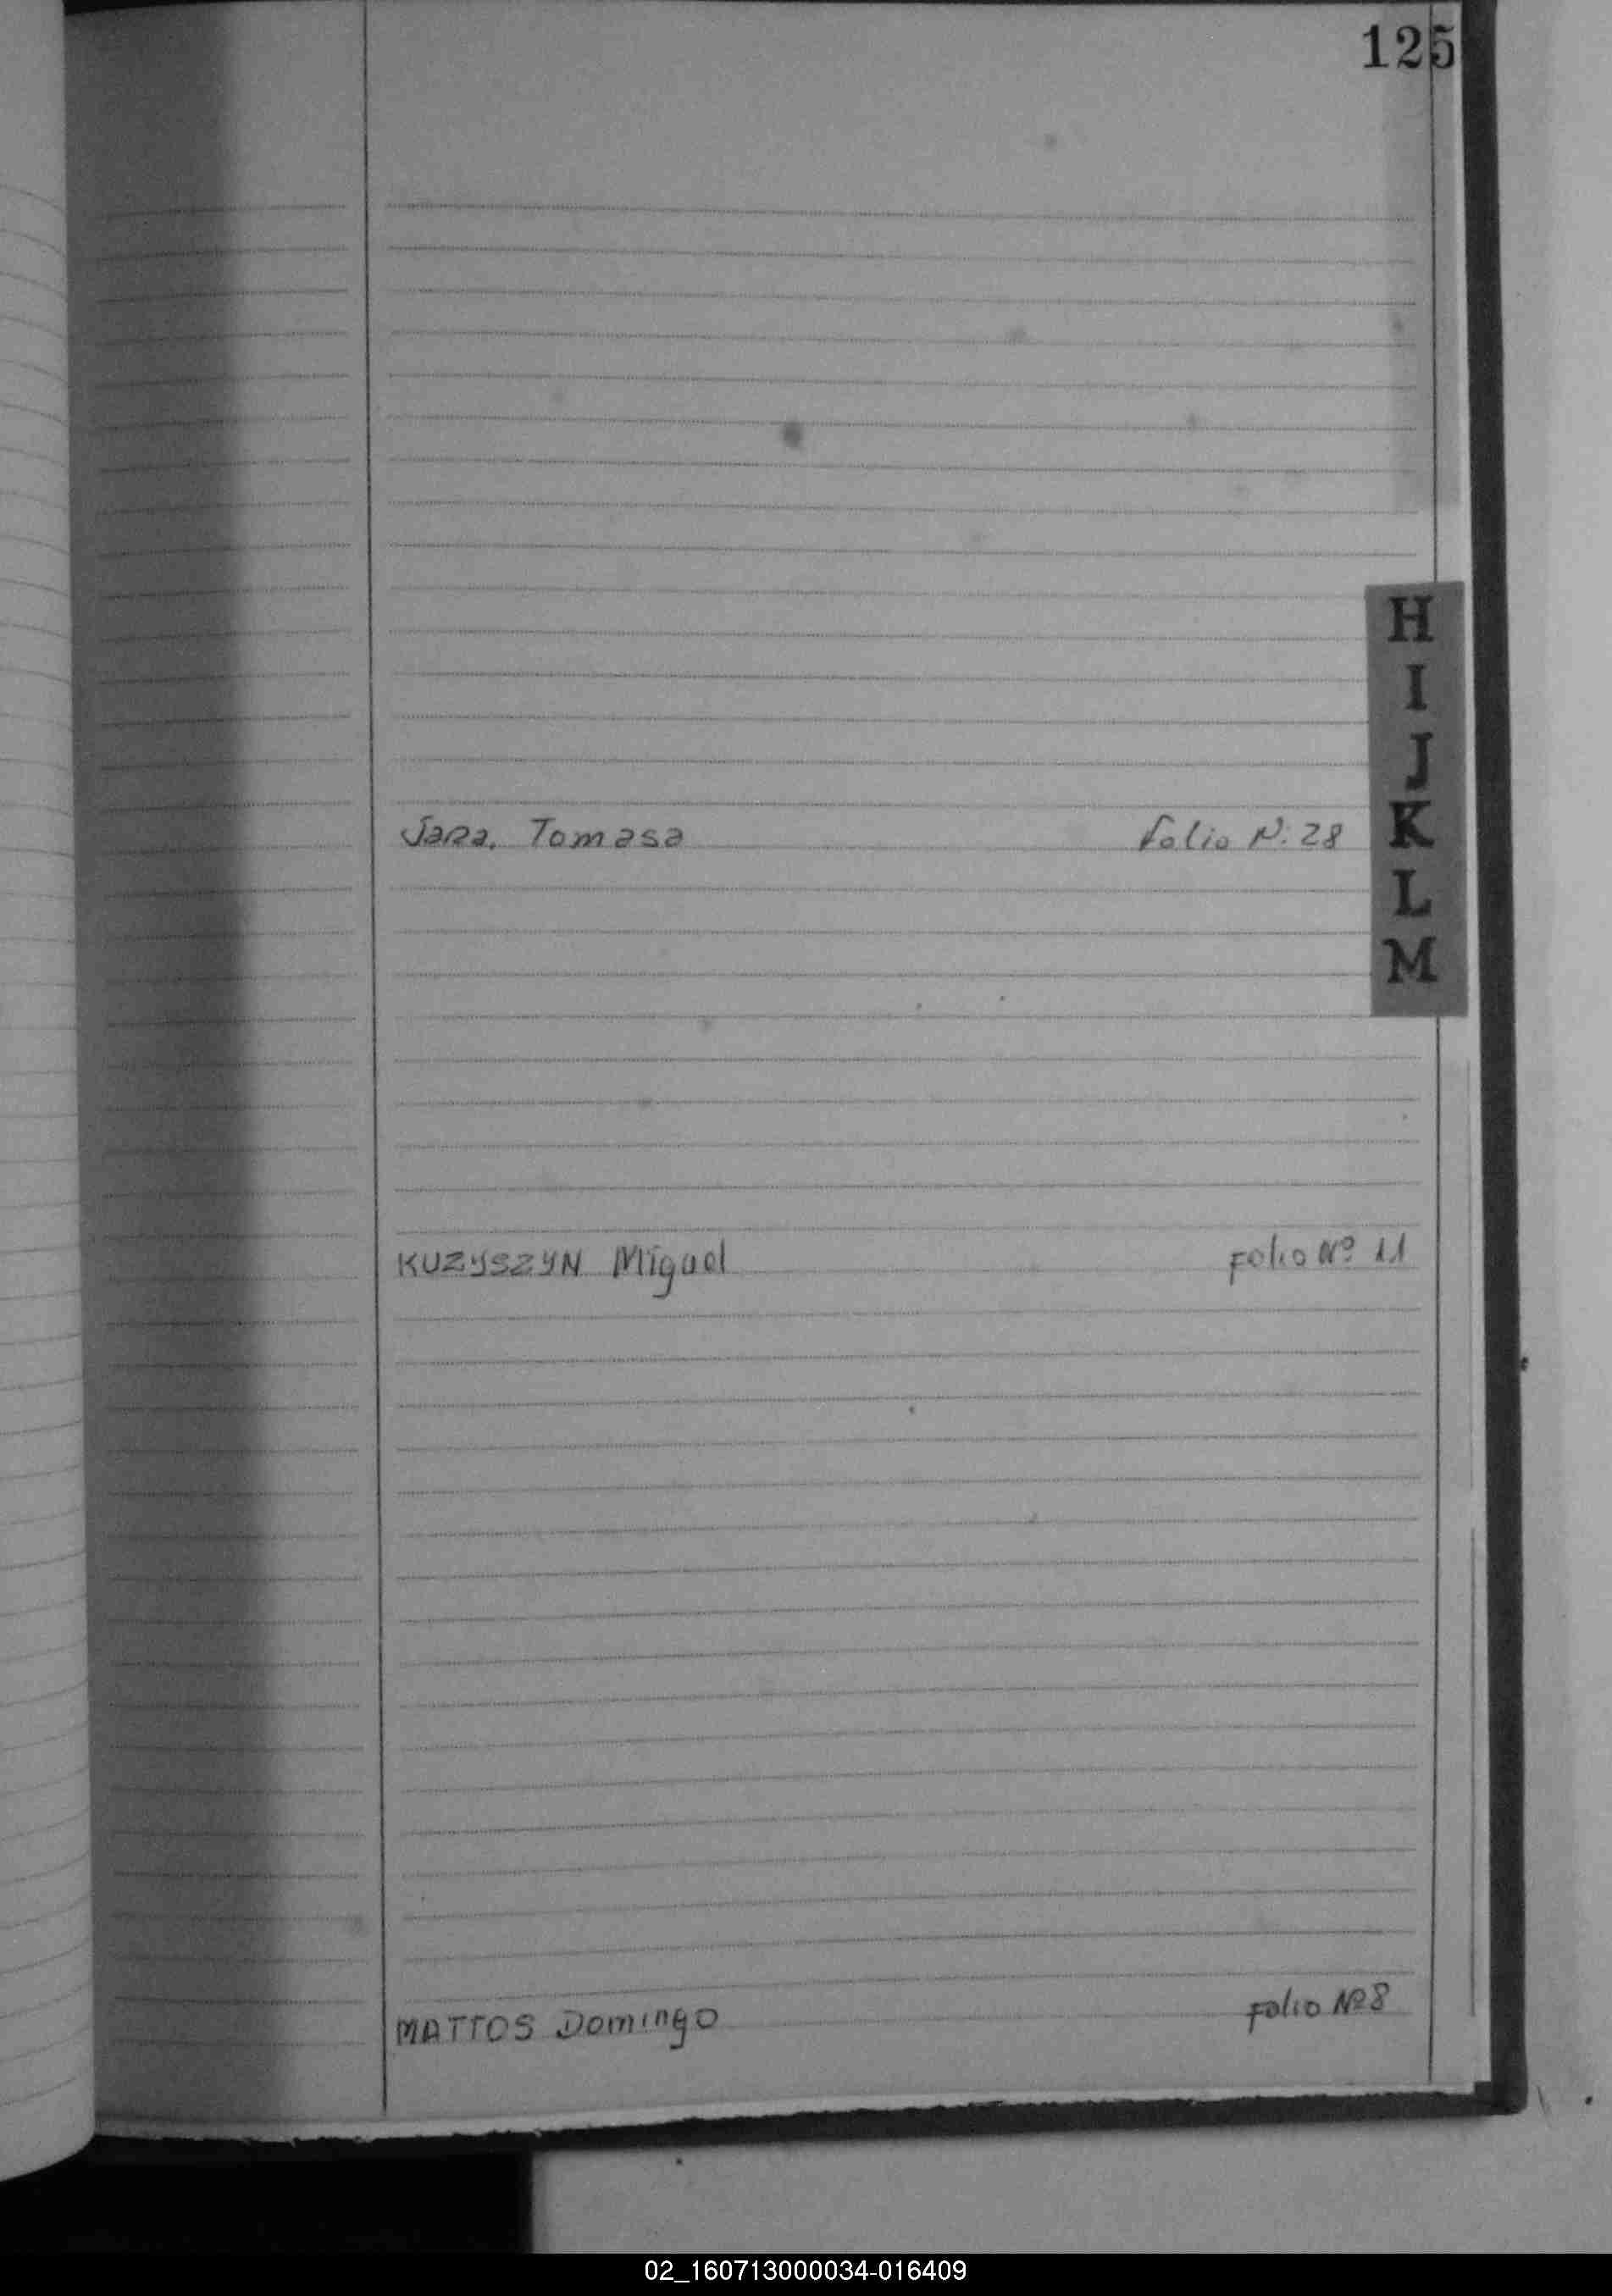 125
H
I
J
Jara, Tomasa Folio N: 28
K
L
M
KUZYSZYN Miguel Folio Nº 11
MATTOS Domingo Folio Nº 8
02_160713000034-016409